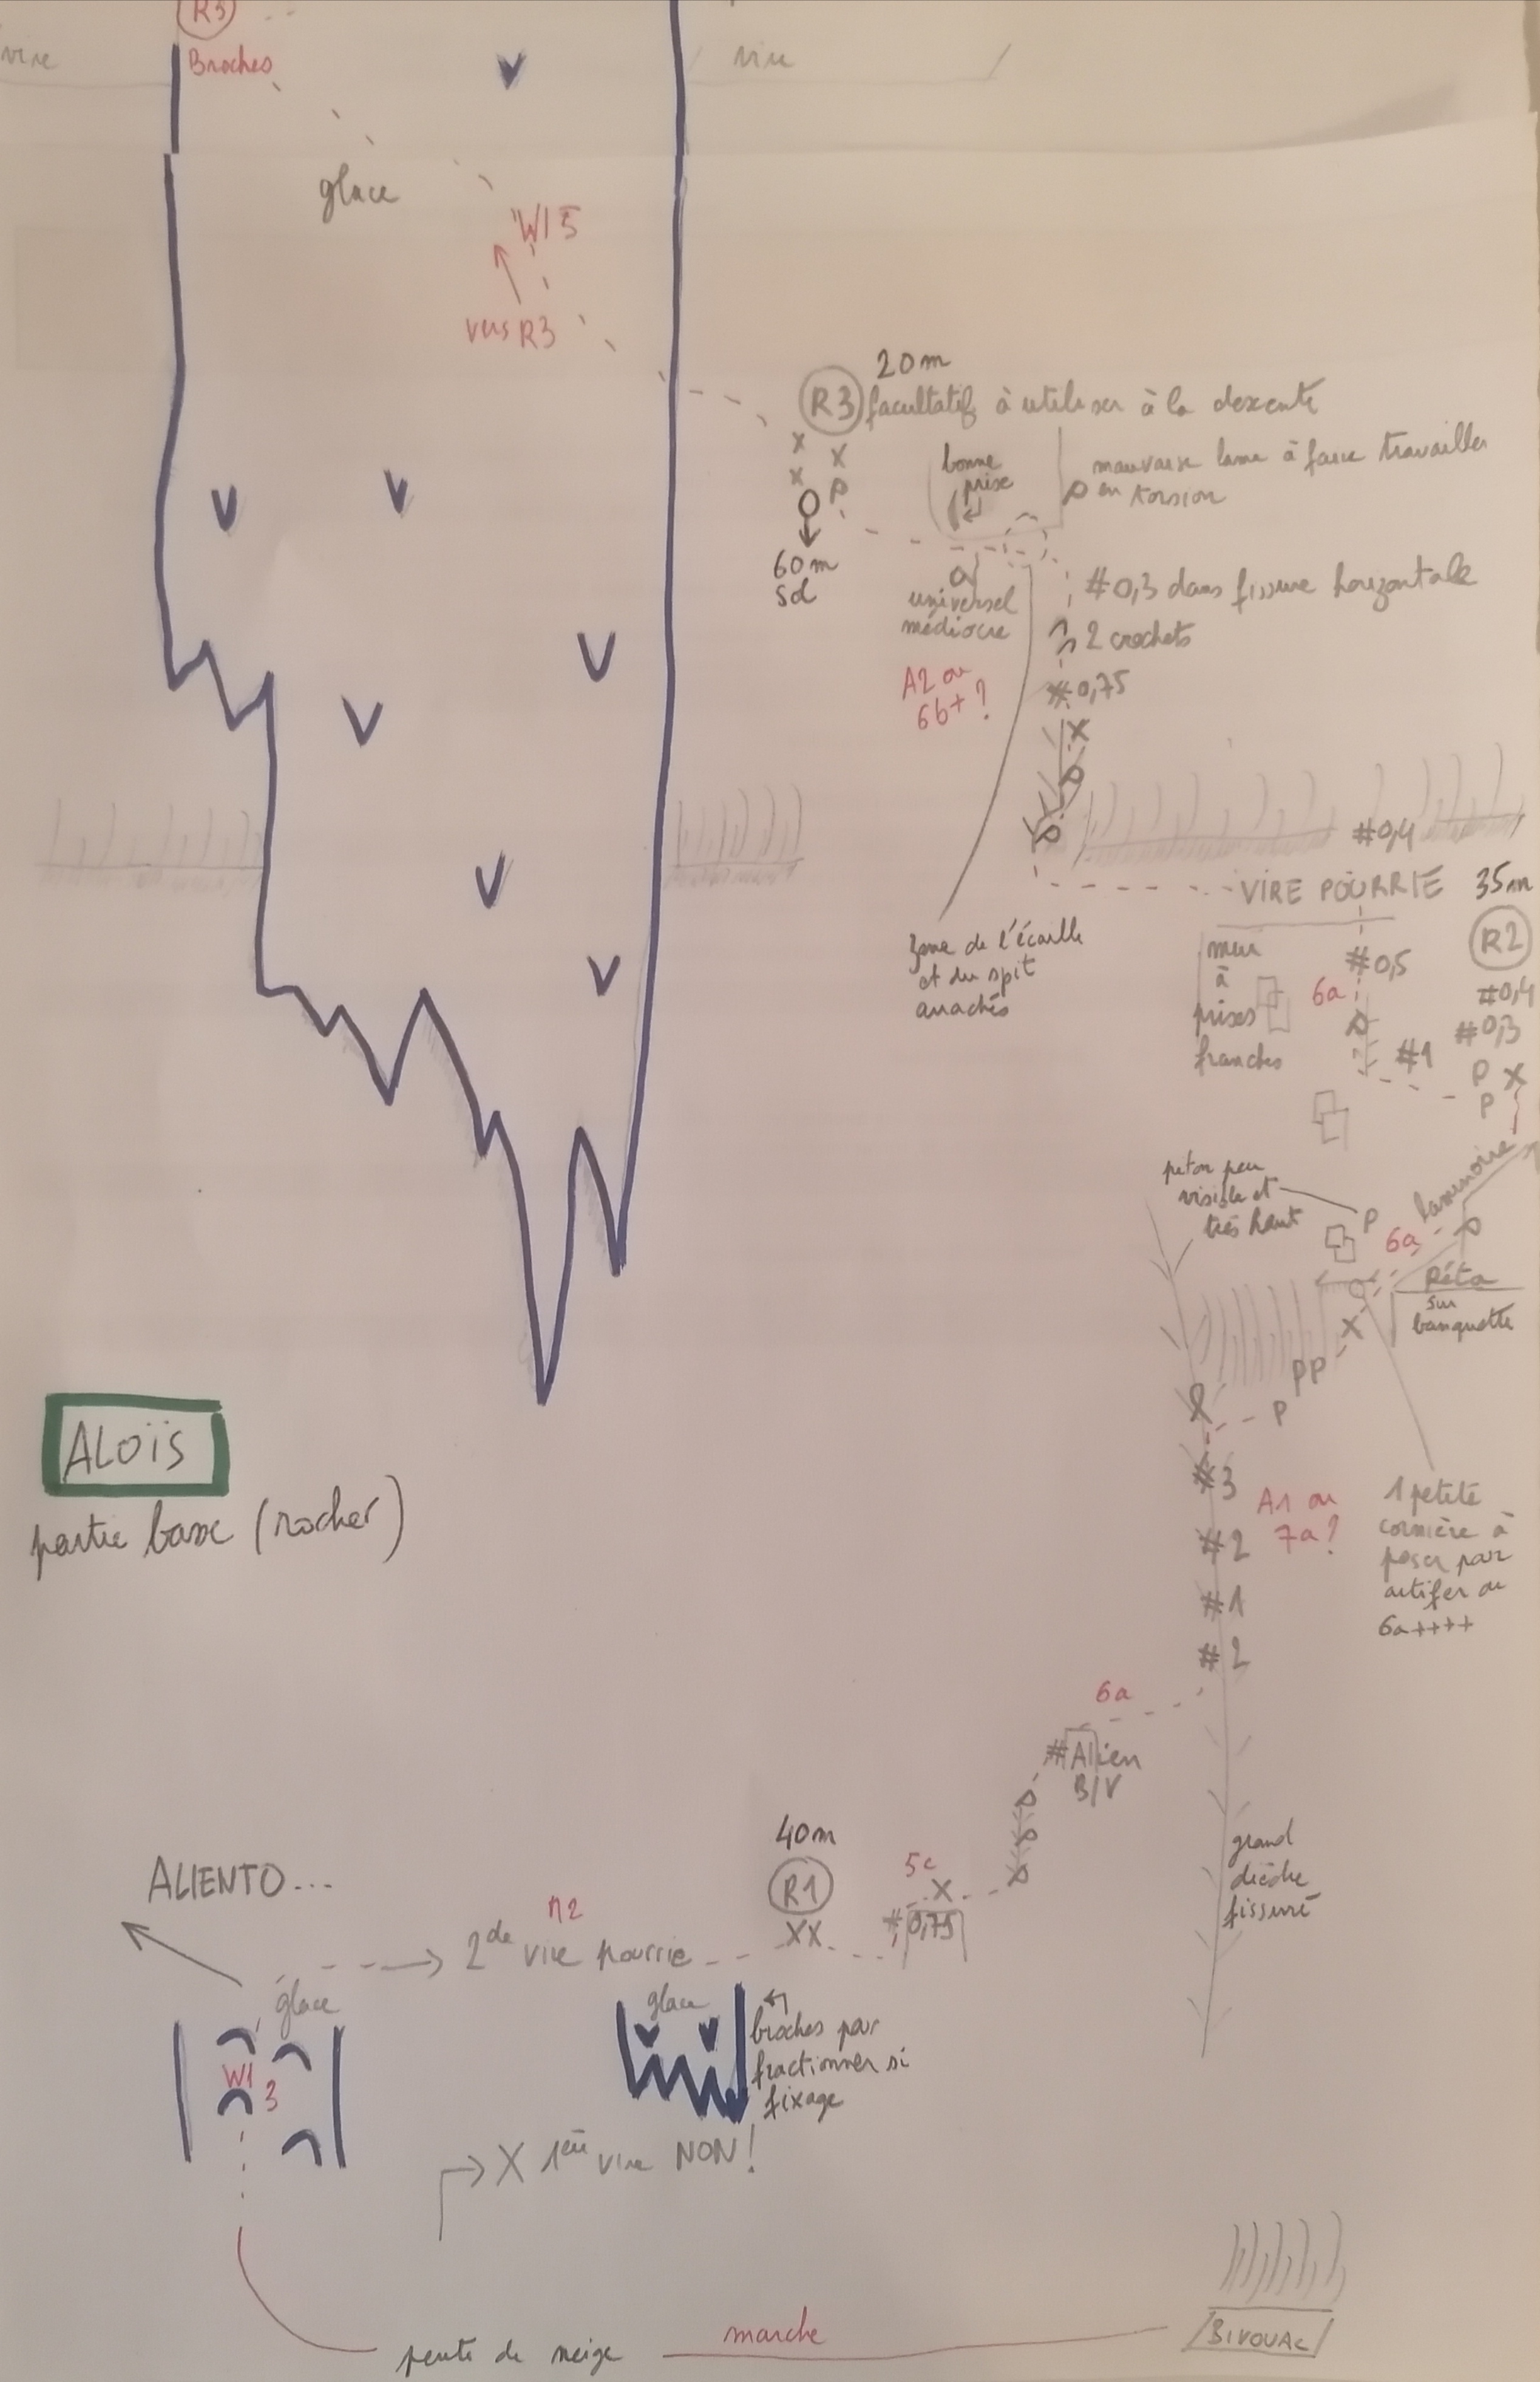 R5
Broches
vire
vire
glace
WI 5
vers R3
20m
R3 facultatif à utiliser à la descente
bonne
prise
mauvaise lame à faire travailler
en torsion
60m
sol
universel
médiocre
#0,3 dans fissure horizontale
2 crochets
A2 ou
6b+?
#0,75
X
#0,4
VIRE POURRIE
35m
R2
zone de l'écaille
et du spit
arrachés
mur
à
prises
franches
#0,5
6a
#0,4
#0,3
#1
P X
P
piton peu
visible et
très haut
P
laminoire
6a
Réta
sur
banquette
X
PP
P
ALOÏS
partie basse (rocher)
#3
A1 ou
7a?
#2
#1
#2
1 petite
cornière à
poser par
artifer ou
6a++++
6a
#Alien
B/V
40m
R1
XX
5c
X
#0,75
grand
dièdre
fissuré
ALIENTO...
M2
2de vire pourrie
glace
WI
3
glace
broches pour
fractionner si
fixage
X 1ère vire NON!
pente de neige
marche
BIVOUAC